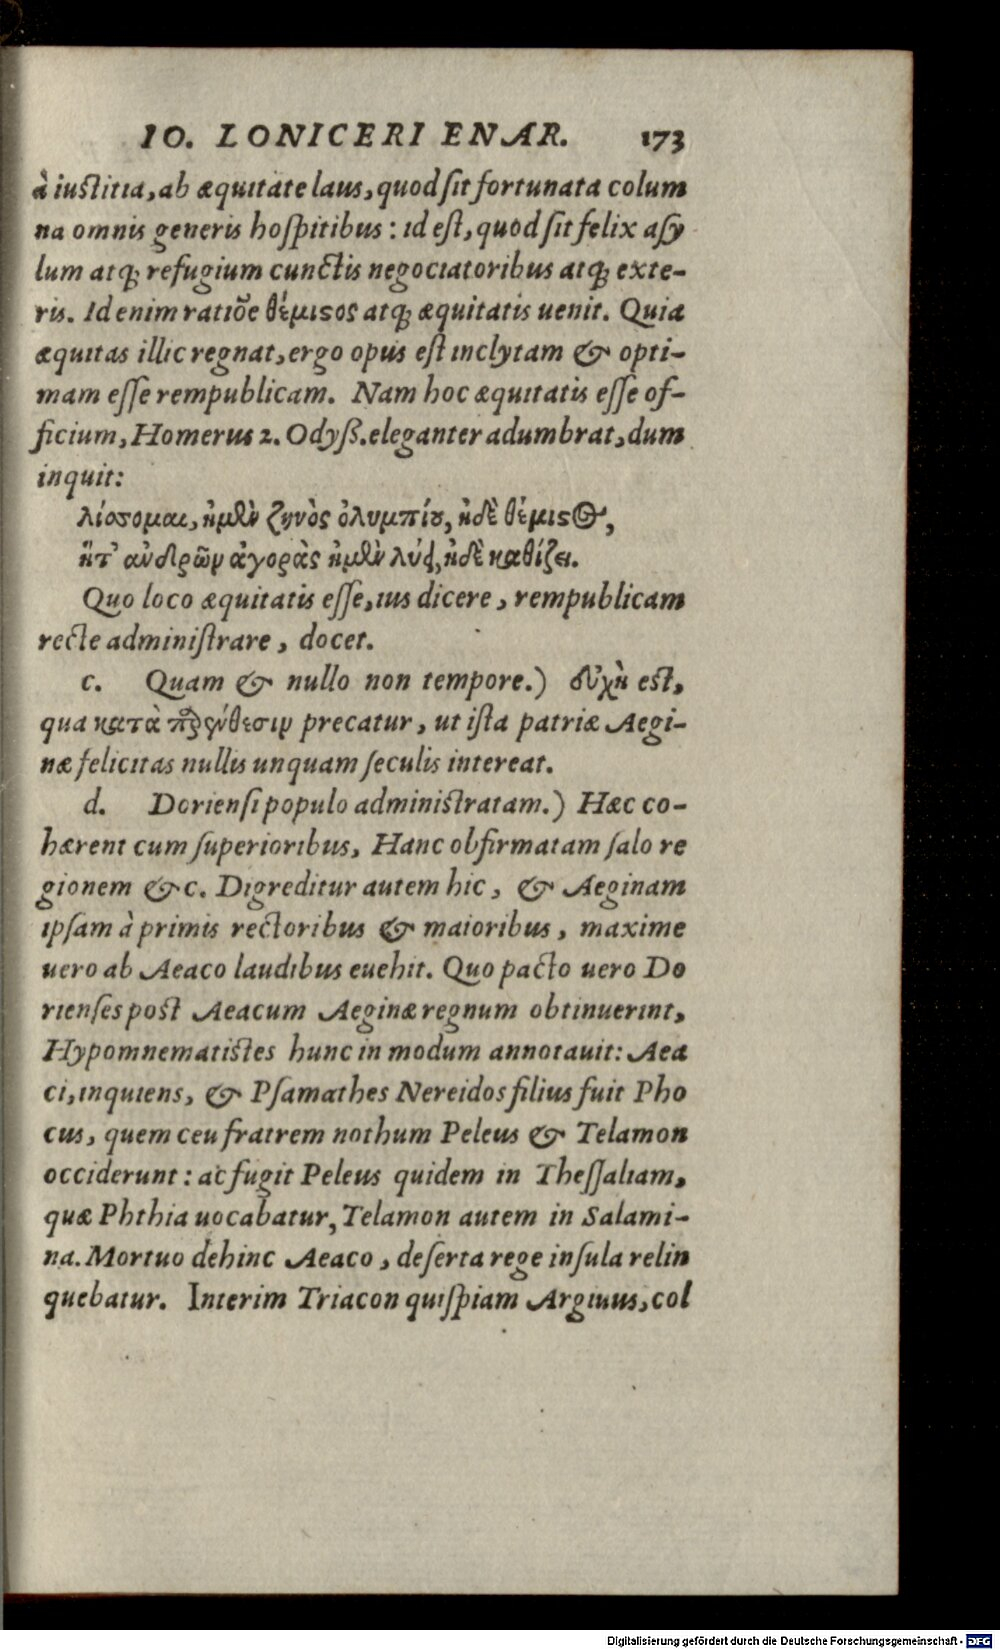 IO. LONICERI ENAR. 173
à iustitia, ab æquitate laus, quod sit fortunata colum
na omnis generis hospitibus: id est, quod sit felix asy
lum atq; refugium cunctis negociatoribus atq; exte-
ris. Id enim ratiõe θέμιϛος atq; æquitatis uenit. Quia
æquitas illic regnat, ergo opus est inclytam & opti-
mam esse rempublicam. Nam hoc æquitatis esse of-
ficium, Homerus 2. Odyß. eleganter adumbrat, dum
inquit:
λίσσομαι, ἠμὲν ζηνὸς ὀλυμπίȣ, ἠδὲ θέμιϛος,
ἥτ᾽ ἀνδρῶν ἀγορὰς ἠμὲν λύει, ἠδὲ καθίζει.
Quo loco æquitatis esse, ius dicere, rempublicam
recte administrare, docet.
c. Quam & nullo non tempore.) εὐχὴ est,
qua κατὰ παρένθεσιν precatur, ut ista patriæ Aegi-
næ felicitas nullis unquam seculis intereat.
d. Doriensi populo administratam.) Hæc co-
hærent cum superioribus, Hanc obfirmatam salo re
gionem &c. Digreditur autem hic, & Aeginam
ipsam à primis rectoribus & maioribus, maxime
uero ab Aeaco laudibus euehit. Quo pacto uero Do
rienses post Aeacum Aeginæ regnum obtinuerint,
Hypomnematistes hunc in modum annotauit: Aea
ci, inquiens, & Psamathes Nereidos filius fuit Pho
cus, quem ceu fratrem nothum Peleus & Telamon
occiderunt: ac fugit Peleus quidem in Thessaliam,
quæ Phthia uocabatur, Telamon autem in Salami-
na. Mortuo dehinc Aeaco, deserta rege insula relin
quebatur. Interim Triacon quispiam Argiuus, col
Digitalisierung gefördert durch die Deutsche Forschungsgemeinschaft - DFG